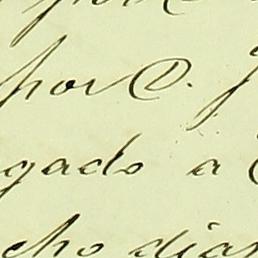 por D.
gado a
cho dias